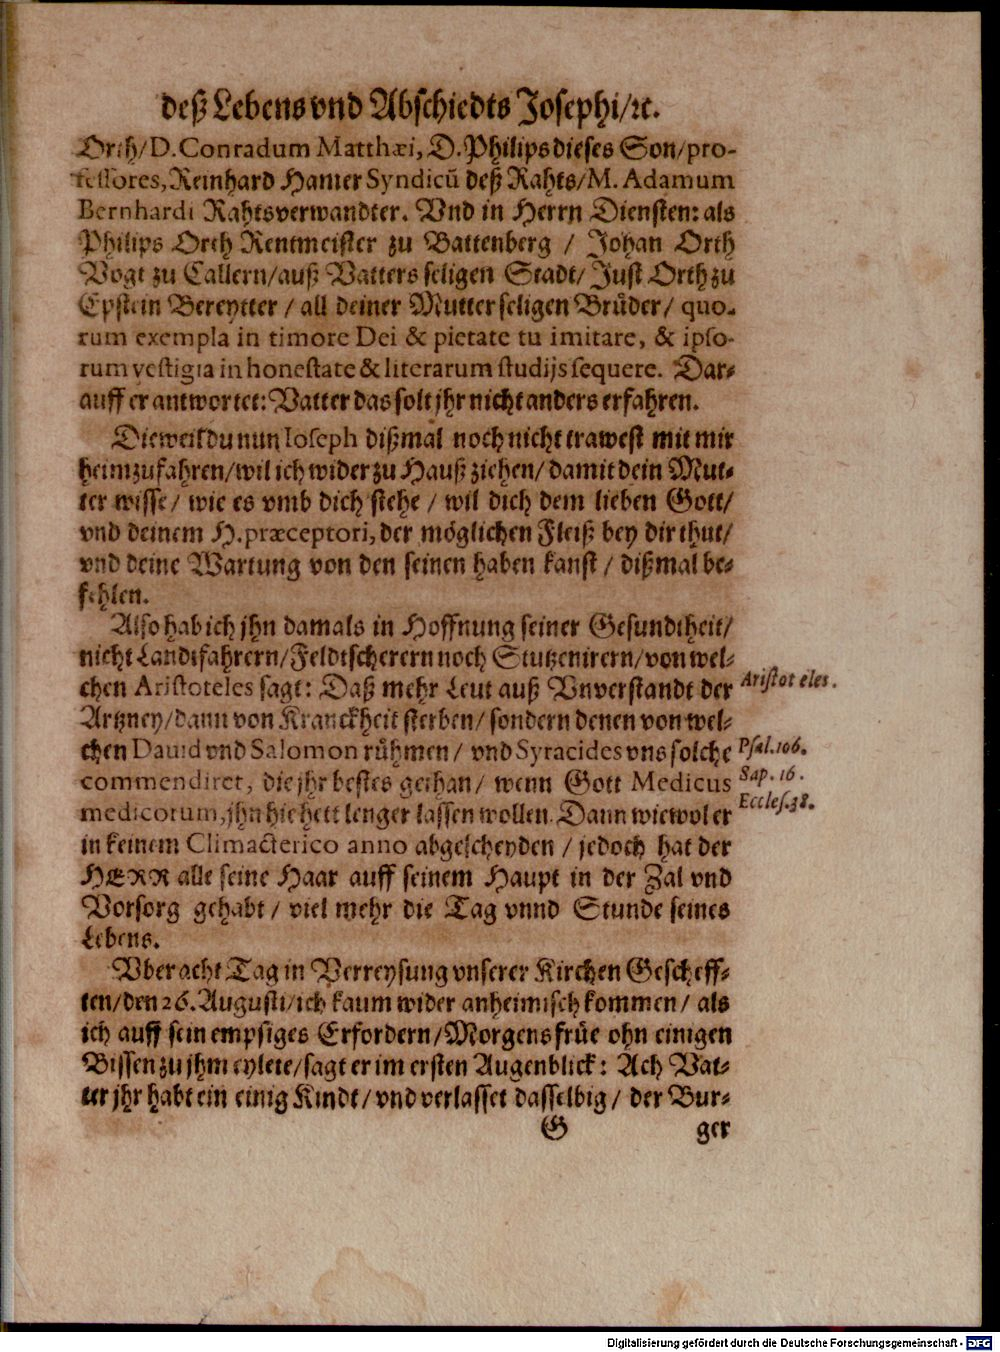 deß Lebens vnd Abschiedts Josephi/ꝛc.
Orth/D. Conradum Matthæi, D. Philips dieses Son/pro-
fessores, Reinhard Hamer Syndicũ deß Rahts/M. Adamum
Bernhardi Rahtsverwandter. Vnd in Herrn Diensten: als
Philips Orth Rentmeister zu Battenberg / Johan Orth
Vogt zu Callern/auß Vatters seligen Stadt/ Just Orth zu
Epstein Bereytter / all deiner Mutter seligen Brüder/ quo-
rum exempla in timore Dei & pietate tu imitare, & ipso-
rum vestigia in honestate & literarum studijs sequere. Dar-
auff er antwortet: Vatter das solt jhr nicht anders erfahren.
Dieweil du nun Ioseph dißmal noch nicht trawest mit mir
heimzufahren/wil ich wider zu Hauß ziehen/ damit dein Mut-
ter wisse/ wie es vmb dich stehe / wil dich dem lieben Gott/
vnd deinem H. præceptori, der möglichen Fleiß bey dir thut/
vnd deine Wartung von den seinen haben kanst / dißmal be-
fehlen.
Also hab ich jhn damals in Hoffnung seiner Gesundtheit/
nicht Landtfahrern/Feldtscherern noch Stutzenirern/von wel-
chen Aristoteles sagt: Daß mehr Leut auß Vnverstandt der
Aristoteles.
Artzney/dann von Kranckheit sterben/ sondern denen von wel-
chen Dauid vnd Salomon rühmen/ vnd Syracides vns solche
Psal.106.
commendiret, die jhr bestes gethan/ wenn Gott Medicus
Sap. 16.
medicorum, jhn hie hett lenger lassen wollen. Dann wiewol er
Eccles.38.
in keinem Climacterico anno abgescheyden / jedoch hat der
HERR alle seine Haar auff seinem Haupt in der Zal vnd
Vorsorg gehabt / viel mehr die Tag vnnd Stunde seines
Lebens.
Vber acht Tag in Verreysung vnserer Kirchen Gescheff-
ten/den 26. Augusti/ich kaum wider anheimisch kommen/ als
ich auff sein empsiges Erfordern/Morgens früe ohn einigen
Bissen zu jhm eylete/sagt er im ersten Augenblick: Ach Vat-
ter jhr habt ein einig Kindt/vnd verlasset dasselbig/ der Bur-
G ger
Digitalisierung gefördert durch die Deutsche Forschungsgemeinschaft - DFG